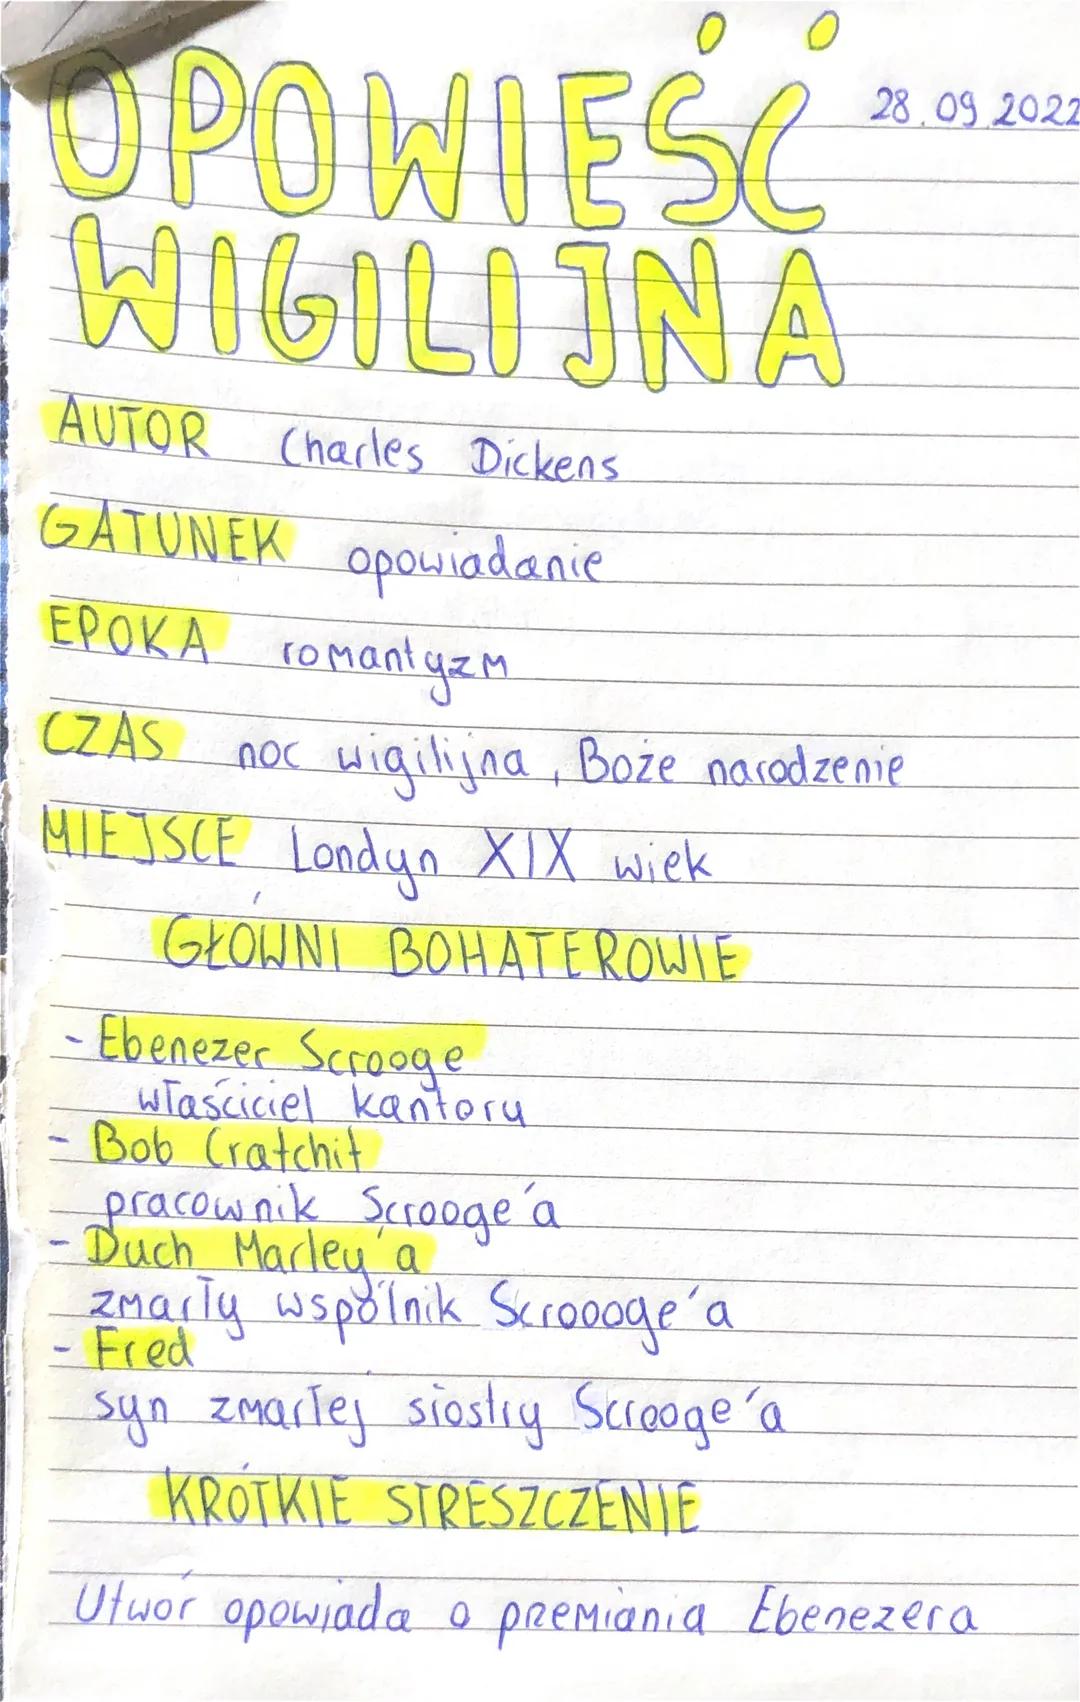 OPOWIEŚĆ
28.09.2022
WIGILIJNA
AUTOR Charles Dickens
GATUNEK opowiadanie
EPOKA romantyzm
CZAS noc wigilijna, Boże narodzenie
MIEJSCE Londyn XIX wiek
GŁÓWNI BOHATEROWIE
- Ebenezer Scrooge
właściciel kantoru
- Bob Cratchit
pracownik Scrooge'a
- Duch Marley'a
zmarły wspólnik Scroooge'a
- Fred
syn zmarłej siostry Scrooge'a
KRÓTKIE STRESZCZENIE
Utwór opowiada o przemiania Ebenezera